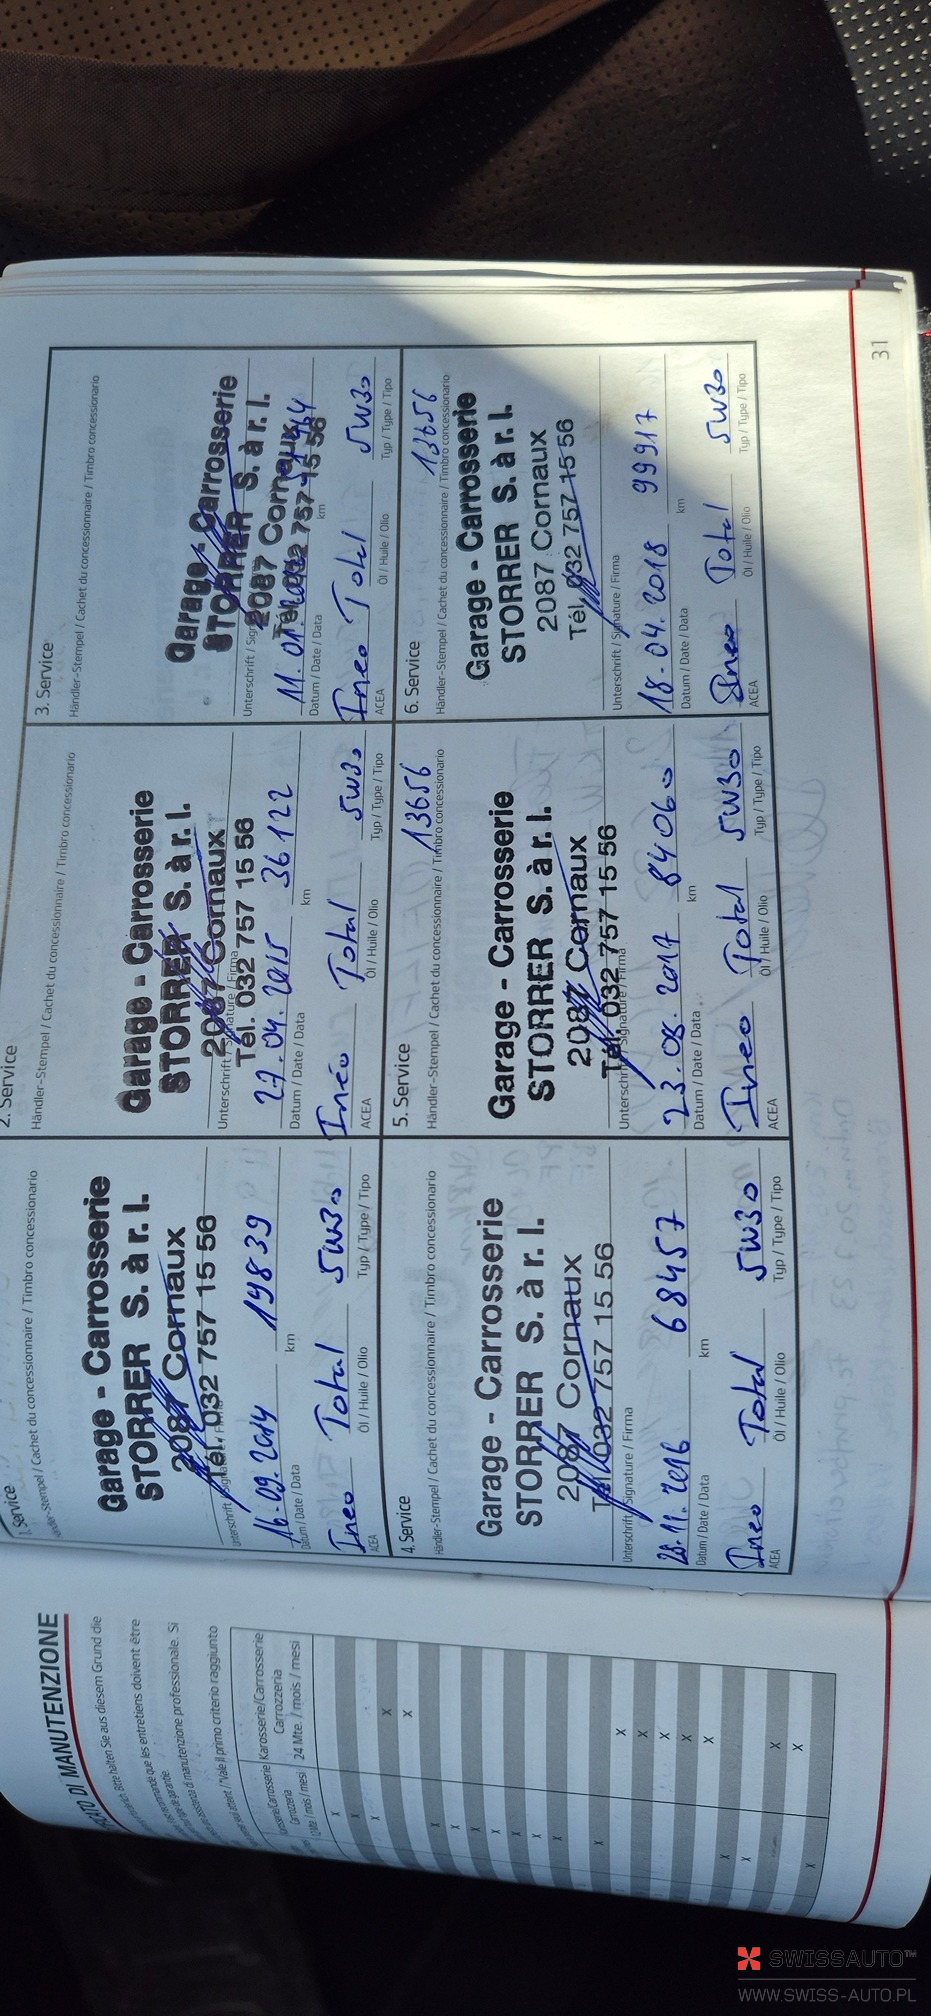 DI MANUTENZIONE
Bitte halten Sie aus diesem Grund die
que les entretiens doivent être
di manutenzione professionale. Si
Vale il primo criterio raggiunto
Karosserie/Carrosserie
Carrozzeria
24 Mte. / mois / mesi
1. Service
Stempel / Cachet du concessionnaire / Timbro concessionario
Garage - Carrosserie
STORRER S. à r. l.
2087 Cornaux
Tél. 032 757 15 56
16.09.2014 19839
Datum / Date / Data km
Ineo Total 5W30
ACEA Öl / Huile / Olio Typ / Type / Tipo
2. Service
Händler-Stempel / Cachet du concessionnaire / Timbro concessionario
Garage - Carrosserie
STORRER S. à r. l.
2087 Cornaux
Unterschrift / Signature / Firma
Tél. 032 757 15 56
27.04.2015 36122
Datum / Date / Data km
Inéo Total 5W30
ACEA Öl / Huile / Olio Typ / Type / Tipo
3. Service
Händler-Stempel / Cachet du concessionnaire / Timbro concessionario
Garage - Carrosserie
STORRER S. à r. l.
2087 Cornaux
Tél. 032 757 15 56
Datum / Date / Data km
Ineo Total 5W30
ACEA Öl / Huile / Olio Typ / Type / Tipo
4. Service
Händler-Stempel / Cachet du concessionnaire / Timbro concessionario
Garage - Carrosserie
STORRER S. à r. l.
2087 Cornaux
Tél. 032 757 15 56
Unterschrift / Signature / Firma
28.11.2016 68457
Datum / Date / Data km
Ineo Total 5W30
ACEA Öl / Huile / Olio Typ / Type / Tipo
5. Service 13656
Händler-Stempel / Cachet du concessionnaire / Timbro concessionario
Garage - Carrosserie
STORRER S. à r. l.
2087 Cornaux
Tél. 032 757 15 56
Unterschrift / Signature / Firma
23.08.2017 84060
Datum / Date / Data km
Ineo Total 5W30
ACEA Öl / Huile / Olio Typ / Type / Tipo
6. Service 13656
Händler-Stempel / Cachet du concessionnaire / Timbro concessionario
Garage - Carrosserie
STORRER S. à r. l.
2087 Cornaux
Tél. 032 757 15 56
Unterschrift / Signature / Firma
18.04.2018 99917
Datum / Date / Data km
Ineo Total 5W30
ACEA Öl / Huile / Olio Typ / Type / Tipo
31
SWISSAUTO™
WWW.SWISS-AUTO.PL